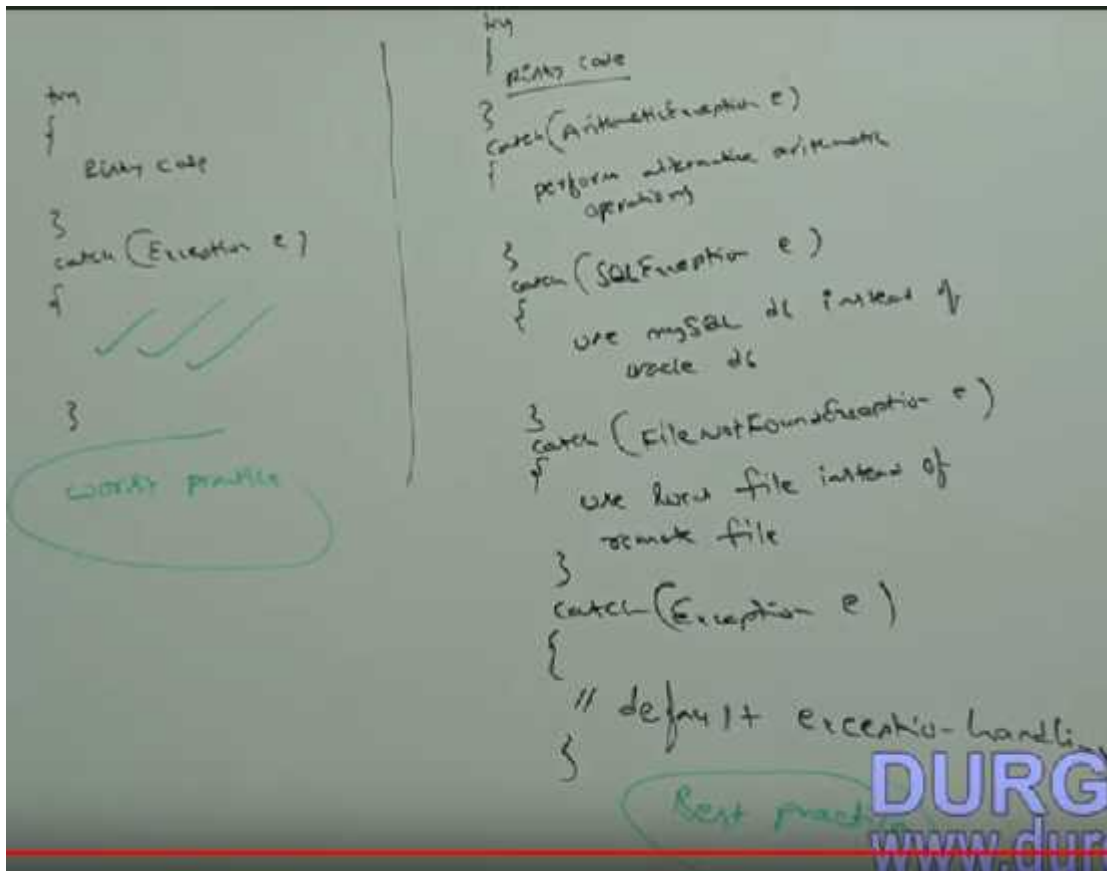 try
{
Risky code
}
catch (Exception e)
{
}
worst practice
try
{
Risky code
}
catch (ArithmeticException e)
{
perform alternative arithmetic
operations
}
catch (SQLException e)
{
use mySQL db instead of
oracle db
}
catch (FileNotFoundException e)
{
use local file instead of
remote file
}
catch (Exception e)
{
// default exceptio-handling
}
Best practice
DURG
www.dur